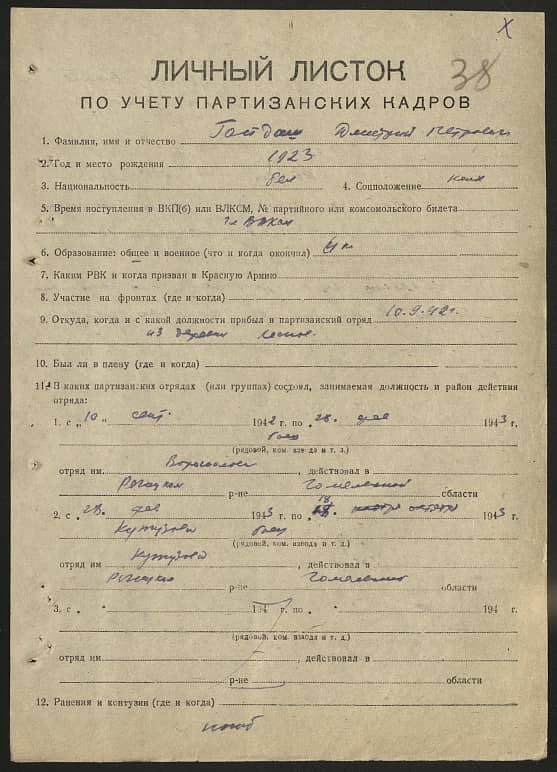 X
38
ЛИЧНЫЙ ЛИСТОК
ПО УЧЕТУ ПАРТИЗАНСКИХ КАДРОВ
1. Фамилия, имя и отчество Дмитрий Петрович
2. Год и место рождения 1923
3. Национальность бел 4. Соцположение
5. Время поступления в ВКП(б) или ВЛКСМ, № партийного или комсомольского билета
6. Образование: общее и военное (что и когда окончил)
7. Каким РВК и когда призван в Красную Армию
8. Участие на фронтах (где и когда)
9. Откуда, когда и с какой должности прибыл в партизанский отряд 10.9.42 г.
из деревни
10. Был ли в плену (где и когда)
11. В каких партизанских отрядах (или группах) состоял, занимаемая должность и район действия
отряда:
1. с „10 сент. 1942 г. по „28. фев 1943 г.
боец
(рядовой, ком. взвода и т. л.)
отряд им. Ворошилова, действовал в
р-не Гомельской области
2. с „28. фев 1943 г. по „18 1943 г.
Кутузова боец
(рядовой, ком. взвода и т. д.)
отряд им Кутузова, действовал в
р-не Гомельской области
3. с „ " 194 г. по „ " 194 г.
(рядовой, ком. взвода и т. д.)
отряд им., действовал в
р-не области
12. Ранения и контузии (где и когда)
погиб